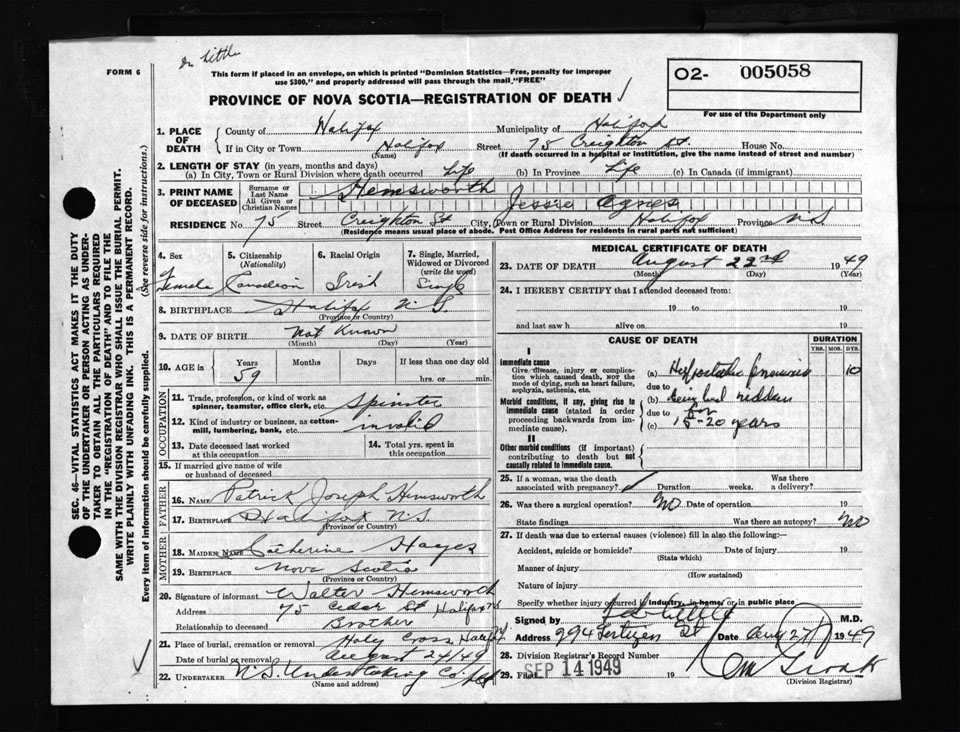 Dr Little
FORM 6
This form if placed in an envelope, on which is printed "Dominion Statistics—Free, penalty for improper
use $300," and properly addressed will pass through the mail, "FREE"
PROVINCE OF NOVA SCOTIA—REGISTRATION OF DEATH
O2- 005058
For use of the Department only
SEC. 46—VITAL STATISTICS ACT MAKES IT THE DUTY
OF THE UNDERTAKER OR PERSON ACTING AS UNDER-
TAKER TO OBTAIN ALL THE PARTICULARS REQUIRED
IN THE "REGISTRATION OF DEATH" AND TO FILE THE
SAME WITH THE DIVISION REGISTRAR WHO SHALL ISSUE THE BURIAL PERMIT.
WRITE PLAINLY WITH UNFADING INK. THIS IS A PERMANENT RECORD.
Every item of information should be carefully supplied. (See reverse side for instructions.)
1. PLACE OF DEATH
County of Halifax Municipality of Halifax
If in City or Town Halifax Street 75 Creighton St. House No.
(Name) (If death occurred in a hospital or institution, give the name instead of street and number)
2. LENGTH OF STAY (in years, months and days)
(a) In City, Town or Rural Division where death occurred Life (b) In Province Life (c) In Canada (if immigrant)
3. PRINT NAME OF DECEASED
Surname or Last Name Hemsworth
All Given or Christian Names Jessie Agnes
RESIDENCE No. 75 Street Creighton St City, Town or Rural Division Halifax Province N.S
(Residence means usual place of abode. Post Office Address for residents in rural parts not sufficient)
4. Sex 5. Citizenship (Nationality) 6. Racial Origin 7. Single, Married, Widowed or Divorced (write the word)
Female Canadian Irish Single
8. BIRTHPLACE Halifax N.S.
(Province or Country)
9. DATE OF BIRTH Not Known
(Month) (Day) (Year)
10. AGE in Years Months Days If less than one day old
59 hrs. or min.
OCCUPATION
11. Trade, profession, or kind of work as
spinner, teamster, office clerk, etc. Spinster
12. Kind of industry or business, as cotton-
mill, lumbering, bank, etc. invalid
13. Date deceased last worked
at this occupation
14. Total yrs. spent in
this occupation
15. If married give name of wife
or husband of deceased
FATHER
16. NAME Patrick Joseph Hemsworth
17. BIRTHPLACE Halifax N.S.
(Province or Country)
MOTHER
18. MAIDEN NAME Catherine Hayes
19. BIRTHPLACE Nova Scotia
(Province or Country)
20. Signature of informant Walter Hemsworth
Address 75 Cedar St Halifax
Relationship to deceased Brother
21. Place of burial, cremation or removal Holy Cross Halifax
Date of burial or removal August 24/49
22. UNDERTAKER N.S. Undertaking Co Ltd
(Name and address)
MEDICAL CERTIFICATE OF DEATH
23. DATE OF DEATH August 22nd 1949
(Month) (Day) (Year)
24. I HEREBY CERTIFY that I attended deceased from:
19 to 19
and last saw h alive on 19
CAUSE OF DEATH DURATION
YRS. MOS. DYS.
I
Immediate cause
Give disease, injury or complica-
tion which caused death, NOT the
mode of dying, such as heart failure,
asphyxia, asthenia, etc.
(a) Hypostatic pneumonia 10
due to
Morbid conditions, if any, giving rise to
immediate cause (stated in order
proceeding backwards from im-
mediate cause).
(b) being bed ridden
due to for
(c) 15-20 years
II
Other morbid conditions (if important)
contributing to death but not
causally related to immediate cause.
25. If a woman, was the death
associated with pregnancy? Duration weeks. Was there
a delivery?
26. Was there a surgical operation? No Date of operation 19
State findings Was there an autopsy? No
27. If death was due to external causes (violence) fill in also the following:—
Accident, suicide or homicide? Date of injury 19
(State which)
Manner of injury
(How sustained)
Nature of injury
Specify whether injury occurred in industry, in home, or in public place
Signed by M.D.
Address 294 St Date 1949
28. Division Registrar's Record Number
29. Filed SEP 14 1949 19
(Division Registrar)